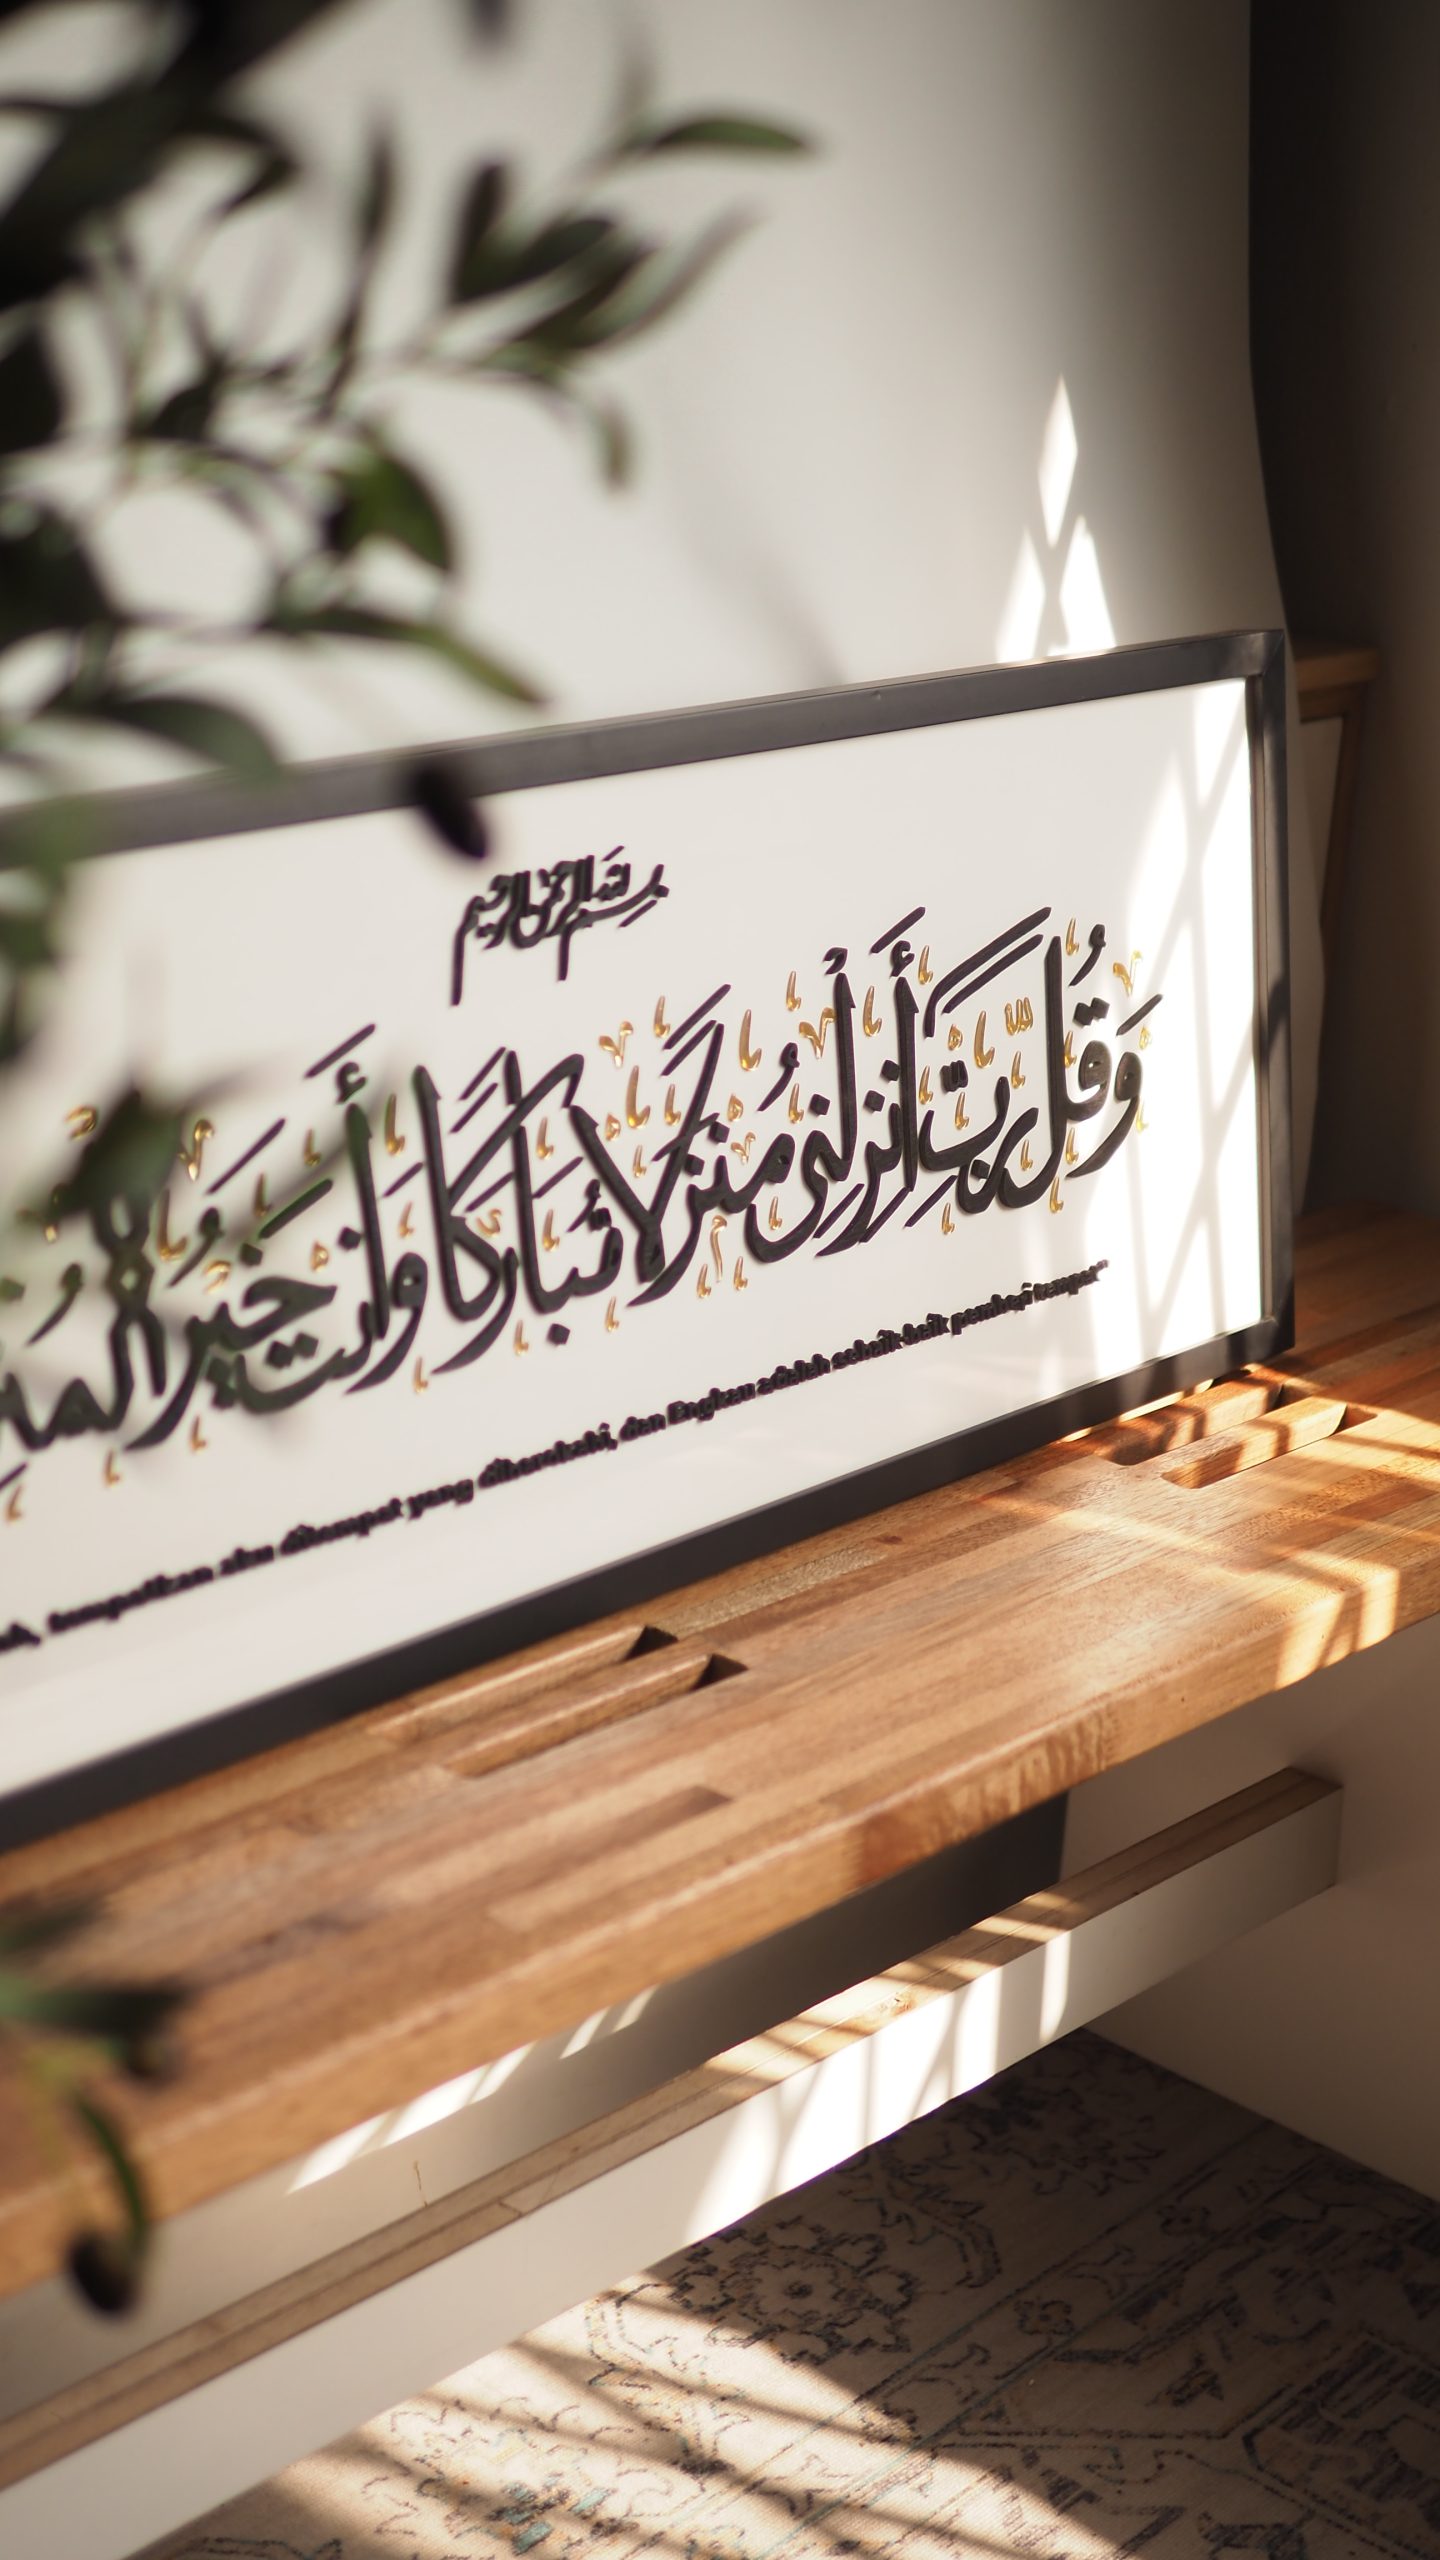 بسم الله الرحمن الرحيم
وَقُل رَّبِّ أَنزِلْنِي مُنزَلًا مُّبَارَكًا وَأَنتَ خَيْرُ الْمُنزِ
tempatkan aku ditempat yang diberokahi, dan Engkau adalah sebaik-baik pemberi tempat"